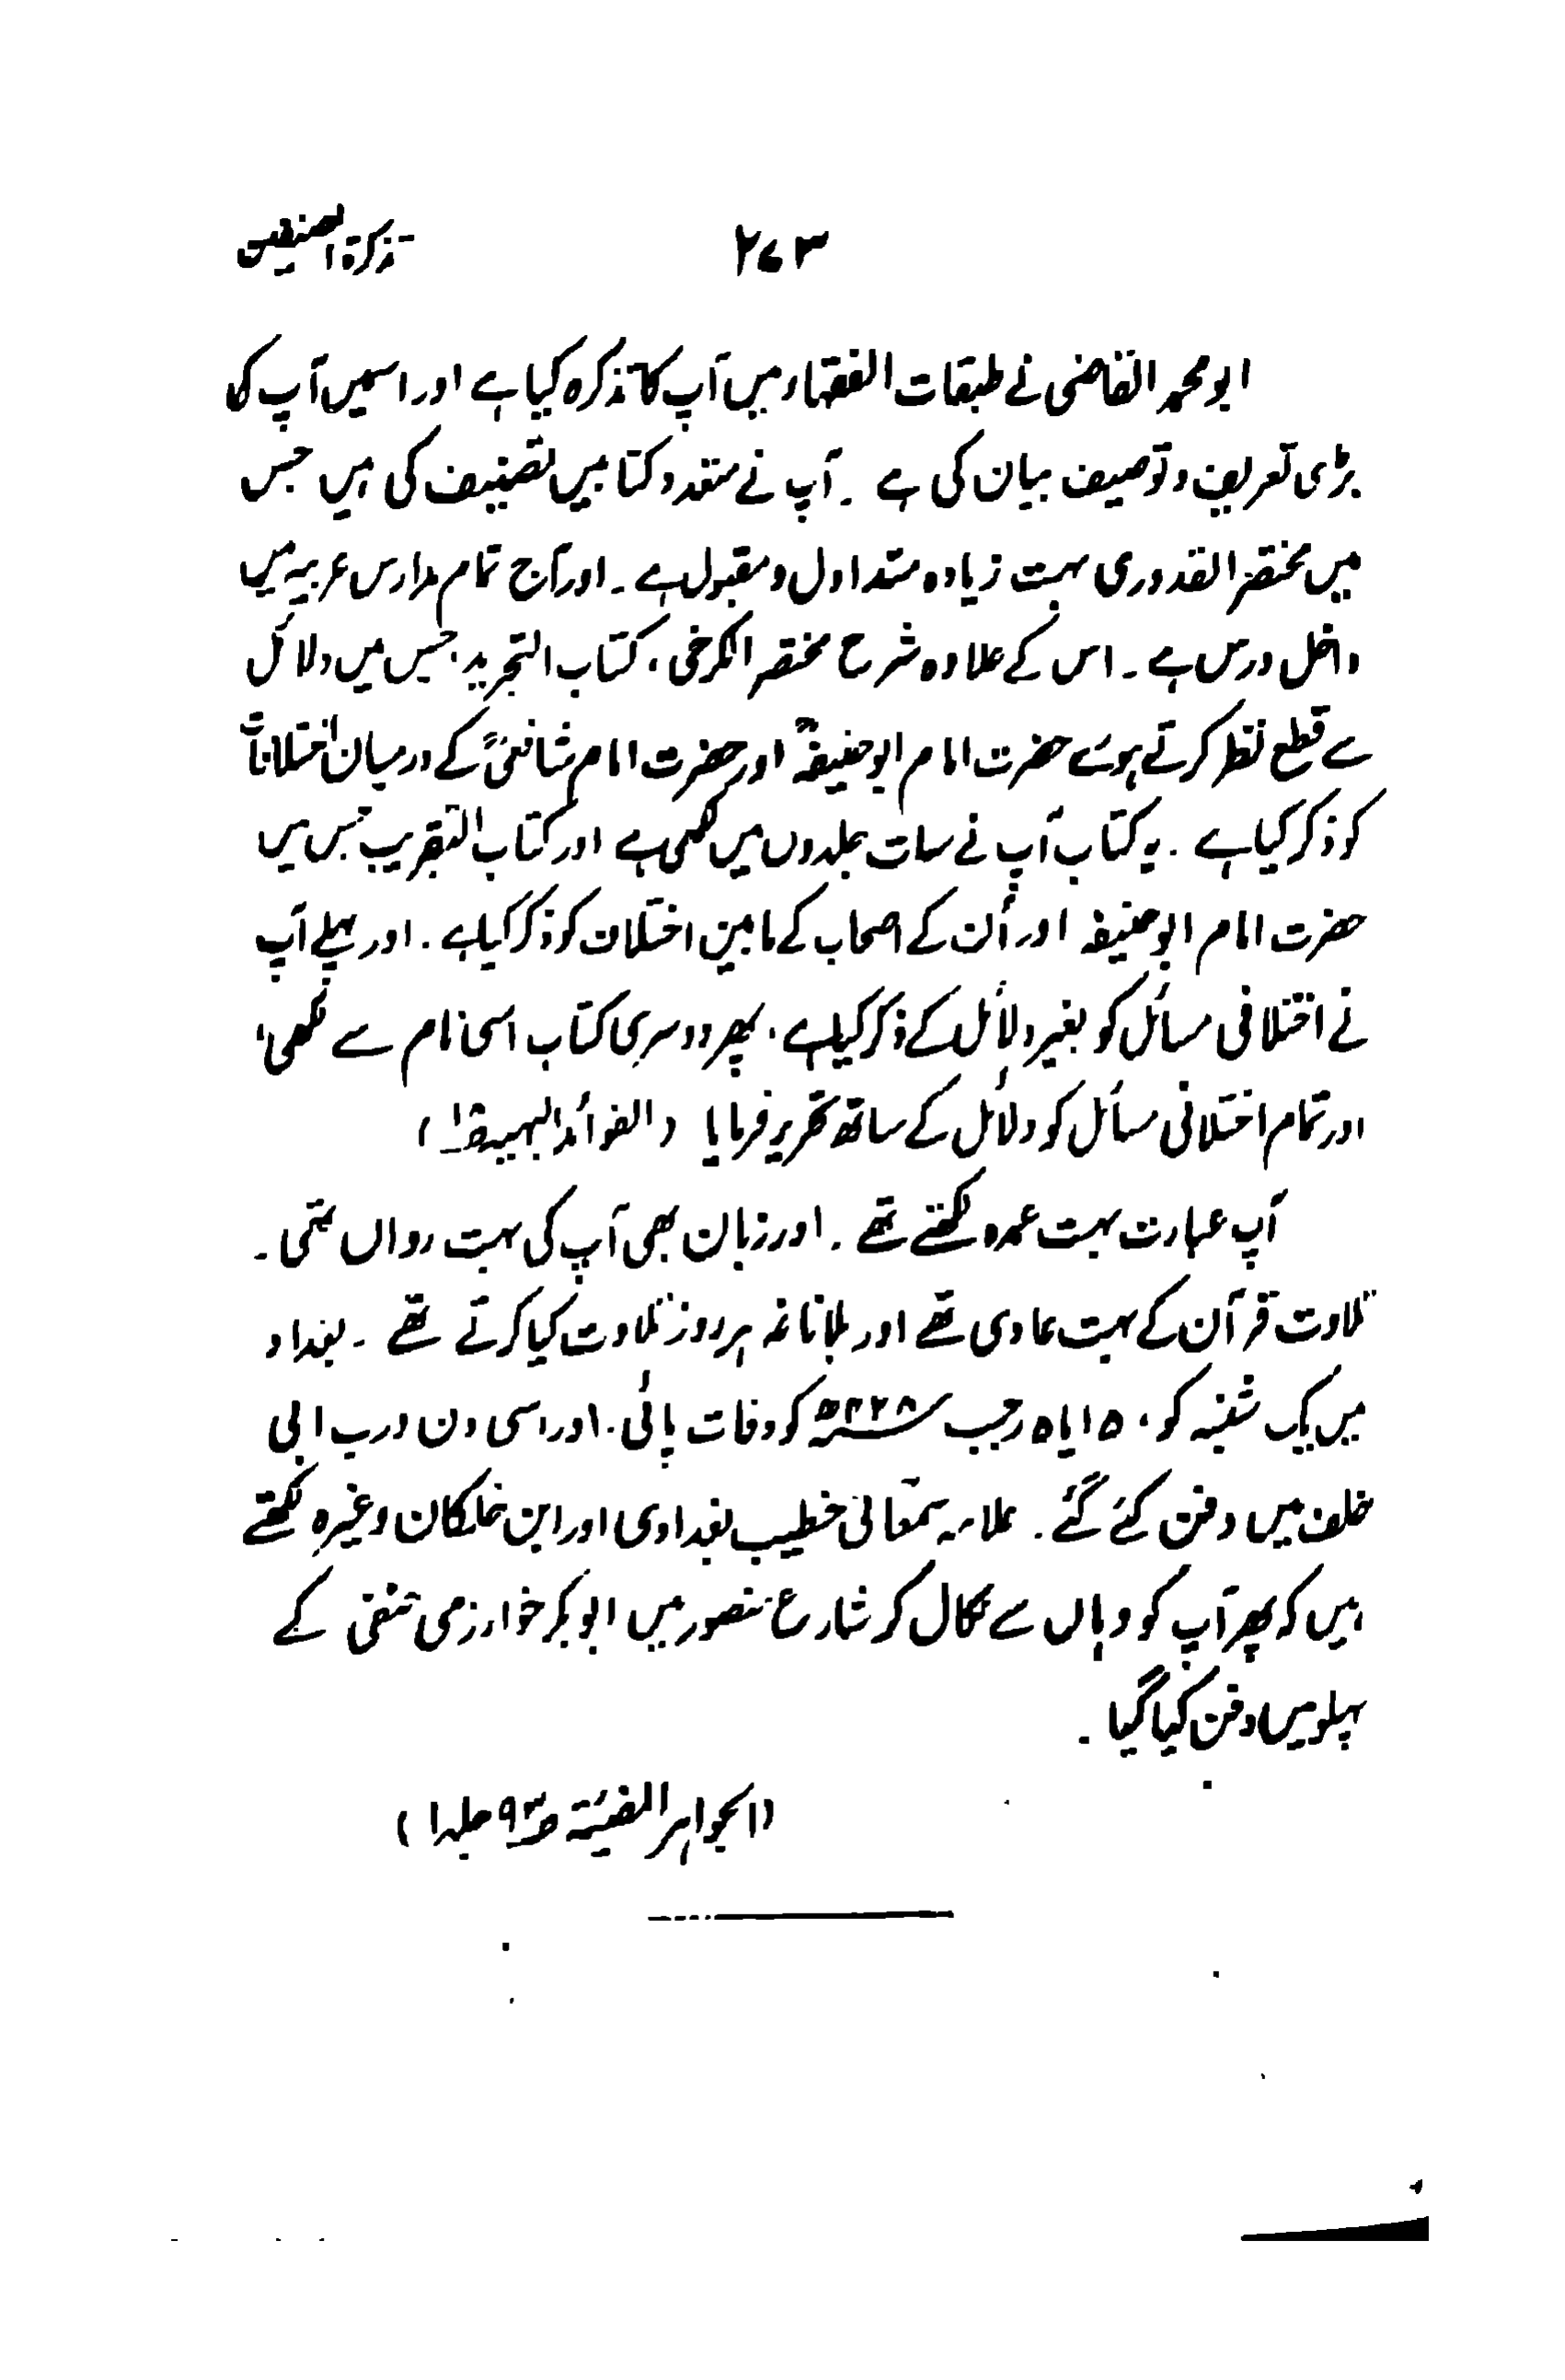 تذکرۃ المصنفین ۲۷۳
ابو محمد القاضی نے طبقات الفقہاء میں آپ کا تذکرہ کیا ہے اور اسمیں آپ کی
بڑی تعریف و توصیف بیان کی ہے ۔ آپ نے متعدد کتابیں تصنیف کی ہیں جس
میں مختصر القدوری بہت زیادہ متداول و مقبول ہے ۔ اور آج تمام مدارس عربیہ میں
داخل درس ہے ۔ اس کے علاوہ شرح مختصر الکرخی ، کتاب التجرید ، جسمیں میں دلائل
سے قطع نظر کرتے ہوئے حضرت امام ابو حنیفہؒ اور حضرت امام شافعیؒ کے درمیان اختلافات
کو ذکر کیا ہے ۔ یہ کتاب آپ نے سات جلدوں میں لکھی ہے اور کتاب التقریب جس میں
حضرت امام ابو حنیفہ اور اُن کے اصحاب کے مابین اختلاف کو ذکر کیا ہے ۔ اور پہلے آپ
نے اختلافی مسائل کو بغیر دلائل کے ذکر کیا ہے ، پھر دوسری کتاب اسی نام سے لکھی ،
اور تمام اختلافی مسائل کو دلائل کے ساتھ تحریر فرمایا ( الفوائد البہیۃ )
آپ عبارت بہت عمدہ لکھتے تھے ۔ اور زبان بھی آپ کی بہت رواں تھی ۔
تلاوت قرآن کے بہت عادی تھے اور بلا ناغہ ہر روز تلاوت کیا کرتے تھے ۔ بغداد
میں یک شنبہ کو ، ۱۵ یا ۵ رجب ۴۲۸ھ کو وفات پائی ۔ اور اسی دن درب ابی
خلف میں دفن کئے گئے ۔ علامہ سمعانی خطیب بغدادی اور ابن خلکان وغیرہ لکھتے
ہیں کہ پھر آپ کو وہاں سے نکال کر شارع منصور میں ابو بکر خوارزمی حنفی کے
پہلو میں دفن کیا گیا ۔
( الجواہر المضیئۃ ص۹۳ جلد ۱ )